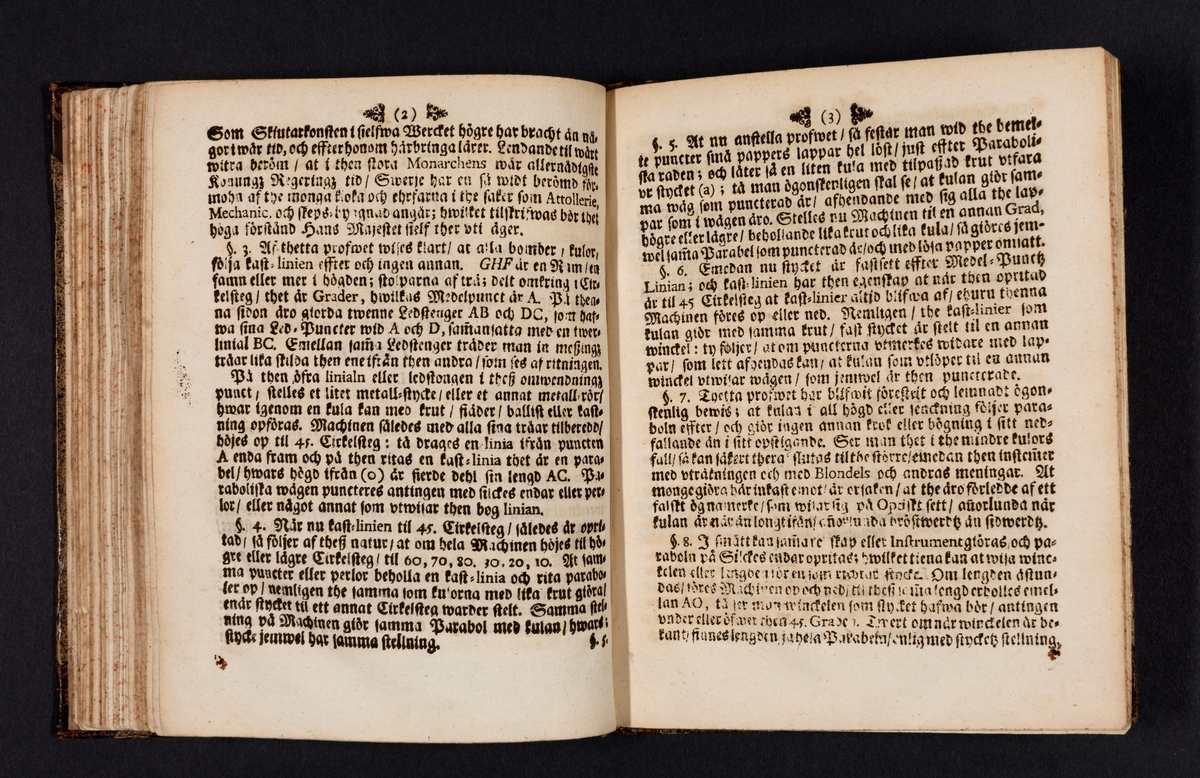 (2)
Som Skiutarkonsten i sielfwa Wercket högre har bracht än nå-
gor i wår tid, och effter honom härbringa lärer. Lendande til wårt
witra beröm / at i then stora Monarchens wår allernådigste
Konungz Regeringz tid / Swerje har en så widt berömd för-
moha af the monga kloka och ehrfarna i the saker som Attollerie,
Mechanic, och skeps-bygnad angår; hwilket tilskrifwas bör thet
höga förstånd Hans Majestet sielf ther uti äger.
§. 3. Af thetta profwet wises klart / at alla bomber / kulor,
följa kast-linien effter och ingen annan. GHF är en Ram / en
famn eller mer i högden; stolparna af trä; delt omkring i Cir-
kelsteg / thet är Grader, hwilkas Medelpunct är A. På then-
na sidon äro giorda twenne Ledstenger AB och DC, som haf-
wa sina Led-Puncter wid A och D, sam̃ansatta med en twer-
linial BC. Emellan sam̃a Ledstenger träder man in meßingz
träar lika skilda then ene ifrån then andra / som ses af ritningen.
På then öfra linialn eller ledstongen i theß omwendningz
punct / stelles et litet metall-stycke / eller et annat metall-rör /
hwar igenom en kula kan med krut / fiäder / ballist eller kast-
ning opföras. Machinen således med alla sina träar tilberedd /
höjes op til 45. Cirkelsteg: tå drages en linia ifrån puncten
A enda fram och på then ritas en kast-linia thet är en para-
bel / hwars högd ifrån (o) är fierde dehl sin lengd AC. Pa-
raboliska wägen puncteres antingen med stickes endar eller per-
lor / eller något annat som utwisar then bog linian.
§. 4. När nu kast-linien til 45. Cirkelsteg / således är opri-
tad / så följer af theß natur / at om hela Machinen höjes til hö-
gre eller lägre Cirkelsteg / til 60, 70, 80. 30. 20, 10. At sam-
ma puncter eller perlor beholla en kast-linia och rita parabo-
ler op / nemligen the samma som kulorna med lika krut giöra /
enär stycket til ett annat Cirkelsteg warder stelt. Samma stel-
ning på Machinen giör samma Parabol med kulan / hwars
stycke jemwel har samma stellning.
§. 5.
(3)
§. 5. At nu anstella profwet / så festar man wid the bemel-
te puncter små pappers lappar hel löst / just effter Paraboli-
ska raden; och låter så en liten kula med tilpaßad krut utfara
ur stycket (a); tå man ögonskenligen skal se / at kulan giör sam-
ma wäg som puncterad är / afhendande med sig alla the lap-
par som i wägen äro. Stelles nu Machinen til en annan Grad,
högre eller lägre / behollande lika krut och lika kula / så giöres jem-
wel sam̃a Parabel som puncterad är / och med lösa papper onnatt.
§. 6. Emedan nu stycket är fastsett effter Medel-Punctz
Linian; och kast-linien har then egenskap at när then opritad
är til 45 Cirkelsteg at kast-linier altid blifwa af / ehuru thenna
Machinen föres op eller ned. Nemligen / the kast-linier som
kulan giör med samma krut / fast stycket är stelt til en annan
winckel: ty följer / at om puncterna utmerkes widare med lap-
par / som lett afhendas kan / at kulan som utlöper til en annan
winckel utwisar wägen / som jemwel är then puncterade.
§. 7. Thetta profwet har blifwit förestelt och lemnadt ögon-
skenlig bewis; at kulan i all högd eller senckning följer para-
boln effter / och giör ingen annan krok eller bögning i sitt ned-
fallande än i sitt opstigande. Ser man thet i the mindre kulors
fall / så kan säkert thera slutas til the större / emedan then instemer
med uträkningen och med Blondels och andras meningar. At
monge giöra här inkast emot / är orsaken / at the äro förledde af ett
falskt ögnamerke / som wisar sig på Optiskt sett / an̄orlunda när
kulan är när än longt ifrån / an̄orlunda bröstwerdtz än sidwerdtz.
§. 8. I smått kan sam̃a redskap eller Instrument giöras, och pa-
raboln på Stickes endar opritas; hwilket tiena kan at wisa winc-
kelen eller lengde för en som richtar stycke. Om lengden åstun-
das / föres Machinen op och ned / til theß sam̃a lengd erholles emel-
lan AO, tå ser man winckelen som stycket hafwa bör / antingen
under eller öfwer then 45. Graden. Twert om när winckelen är be-
kant / finnes lengden på hela Parabeln / enlig med styckets stellning.